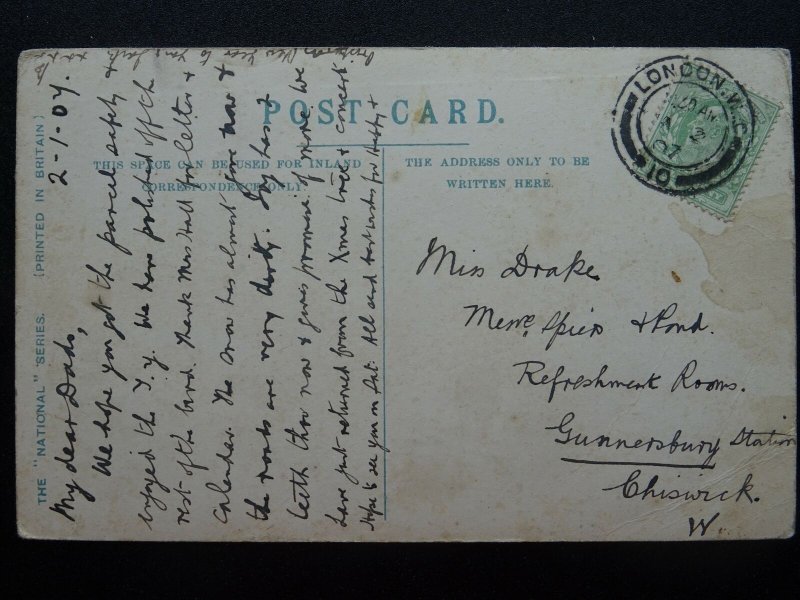 POST CARD.
THIS SPACE CAN BE USED FOR INLAND
CORRESPONDENCE ONLY.
THE ADDRESS ONLY TO BE
WRITTEN HERE.
THE "NATIONAL" SERIES. (PRINTED IN BRITAIN)
LONDON. W.C.
JA 2
07
2-1-07.
My dear Dads,
We hope you got the parcel safely &
enjoyed the T.y. We have polished off the
rest of the bird. Thank Mrs Hall for letter &
Calender. The snow has almost gone now &
the roads are very dirty. Ivy has 2
teeth thro now & gives promise of more. We
have just returned from the Xmas tree & concert
Hope to see you on Sat. All send best wishes for Happy &
Prosperous New Year to you
Miss Drake
Messrs Spiers & Pond.
Refreshment Rooms.
Gunnersbury Station
Chiswick.
W.